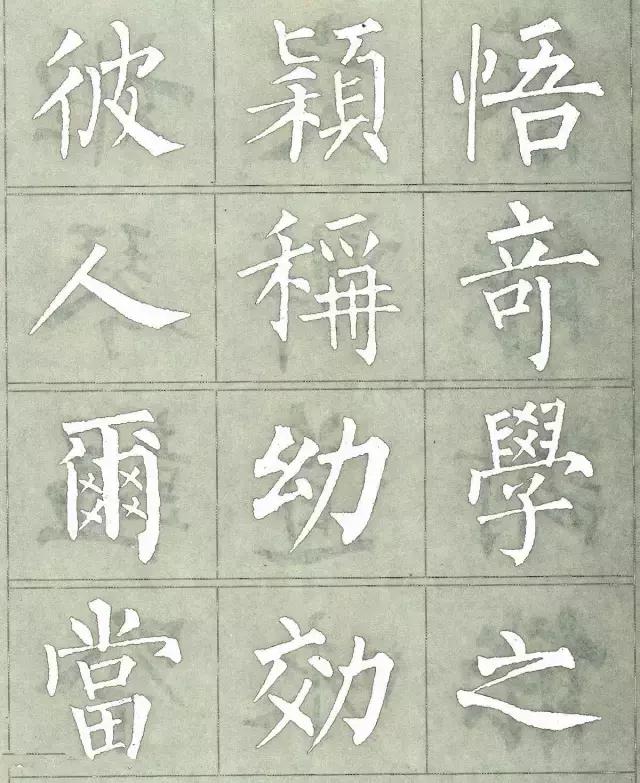 彼穎悟
人稱竒
爾幼學
當効之